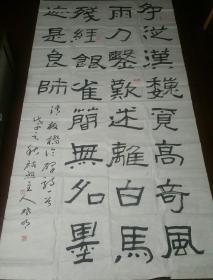 争從漢魏覓高奇風
雨刀鑿歎迷離白馬
殘經銀雀簡無名墨
迹是良師
詩一首
戊子之秋 主人